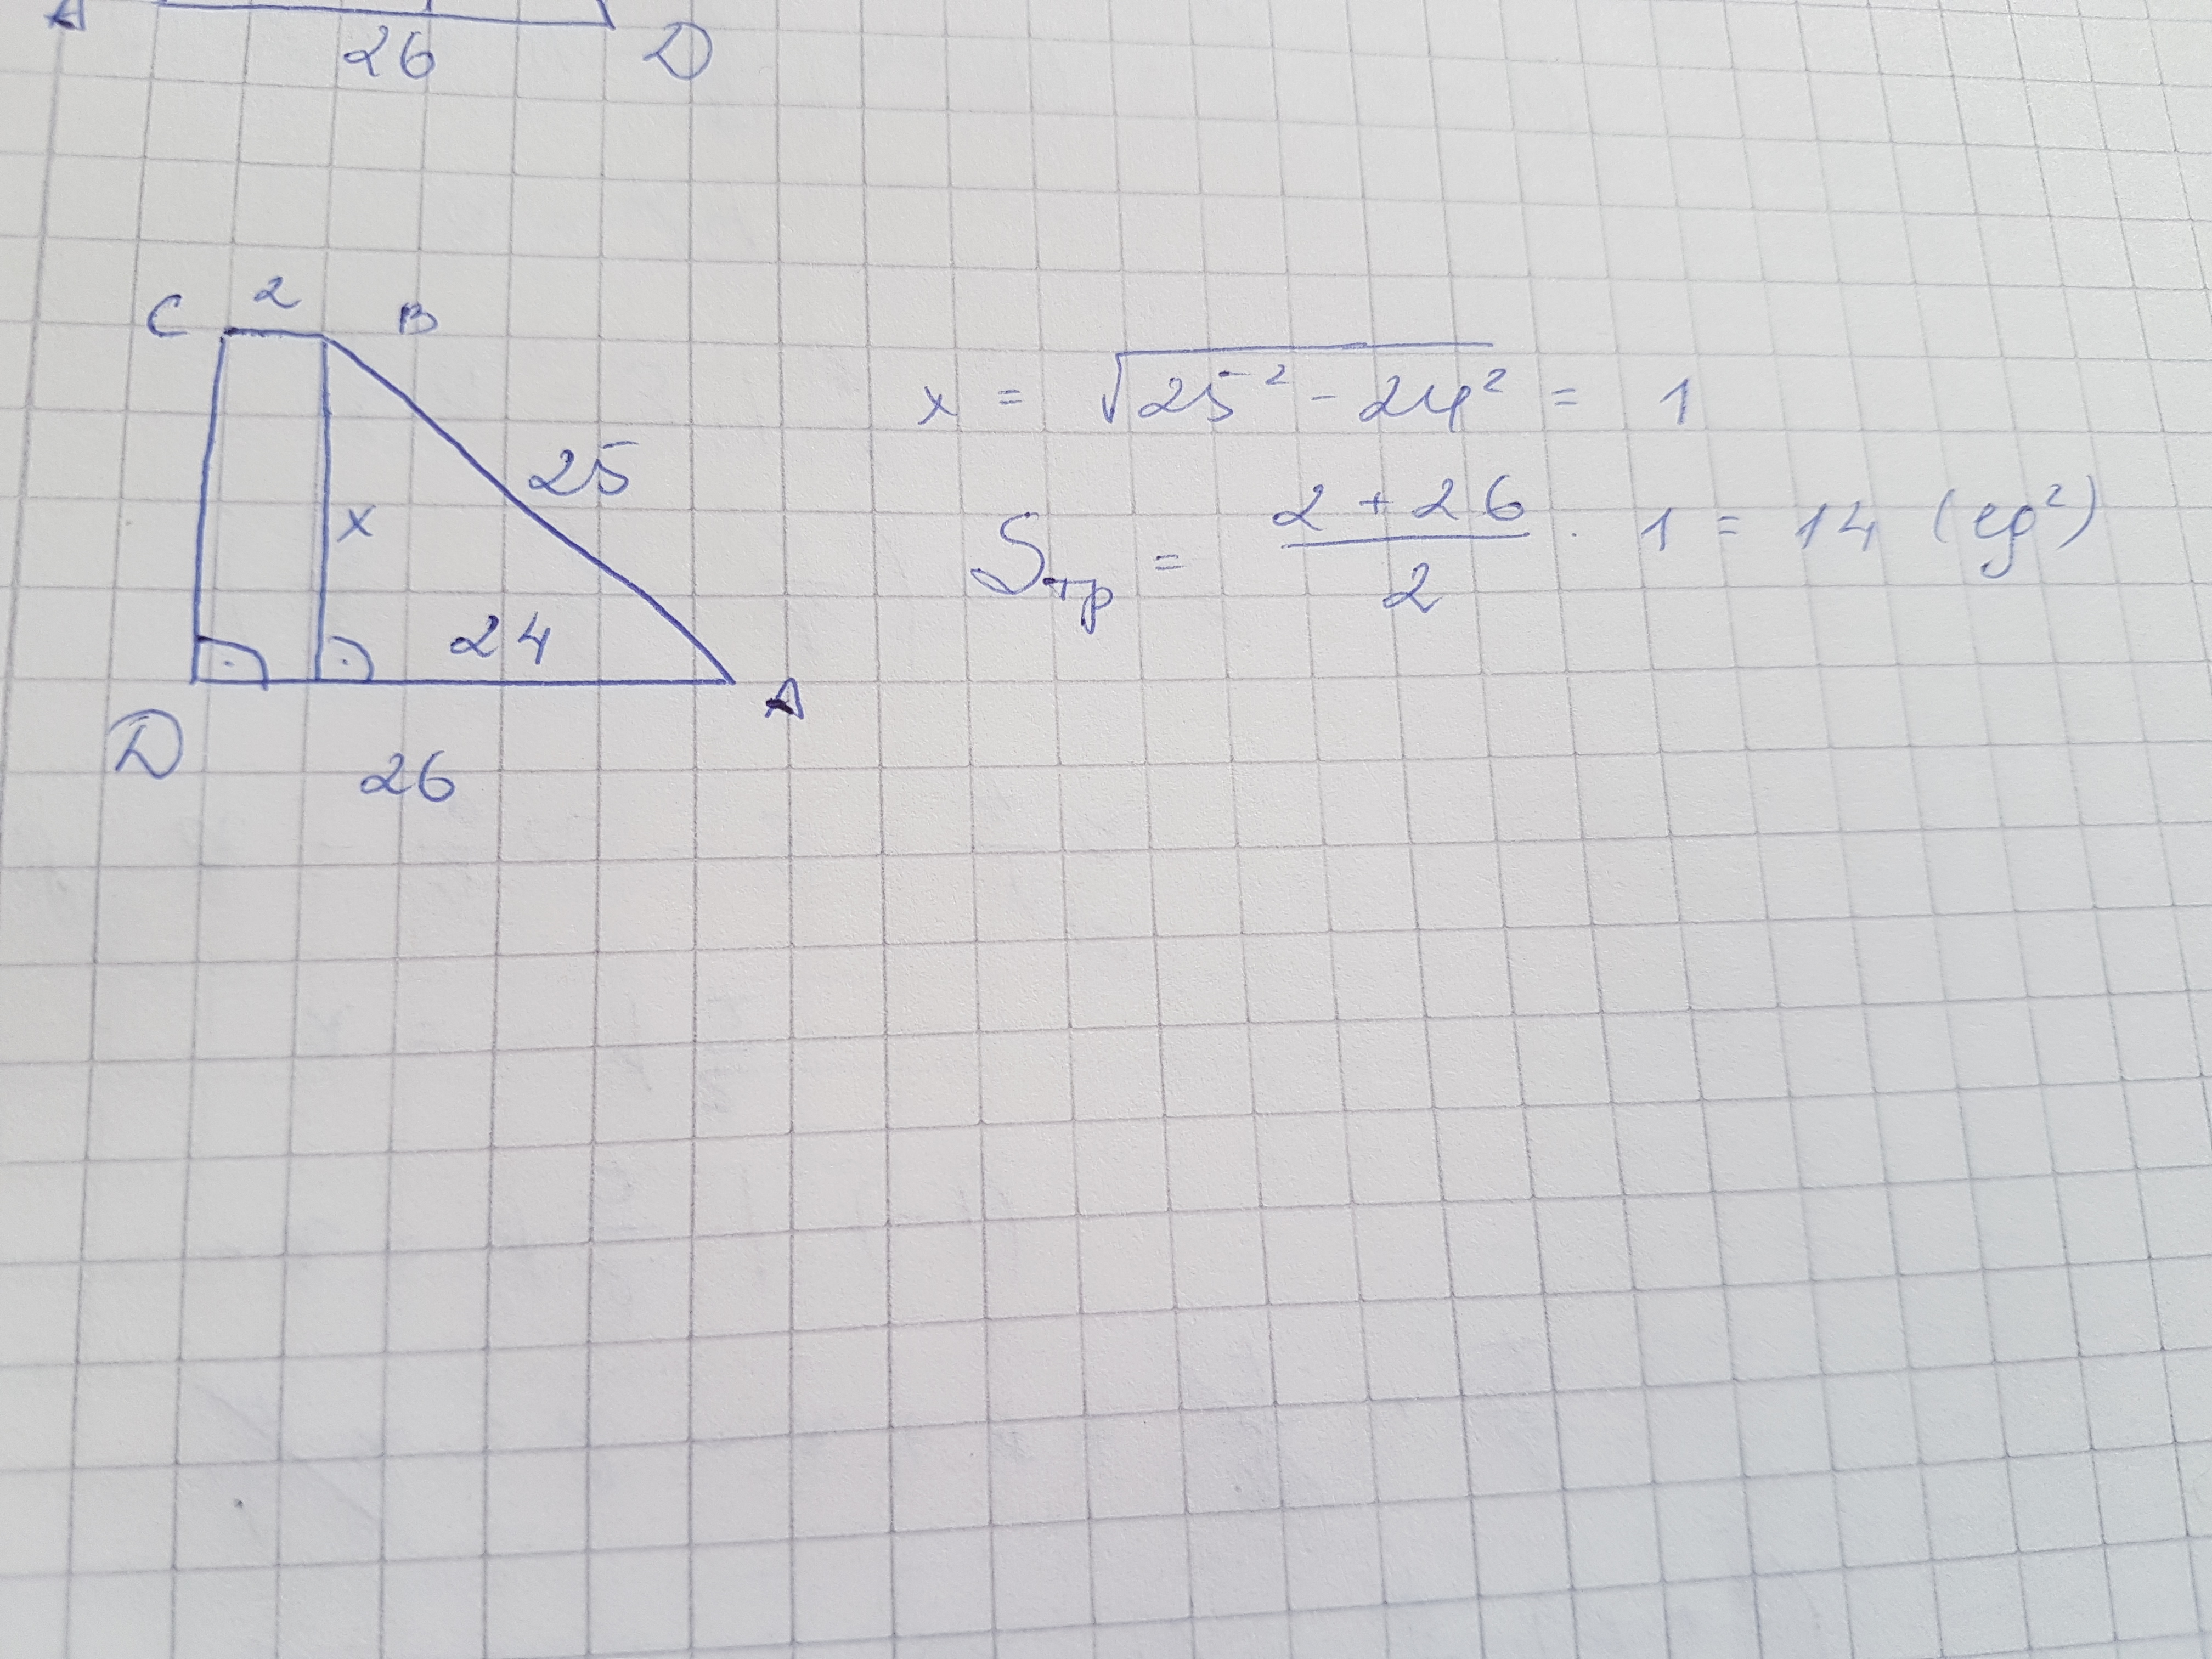 A 26 D
C 2 B
25
x
24
D A
26
x = √25² - 24² = 1
Sтр = 2 + 26 / 2 · 1 = 14 (eg²)